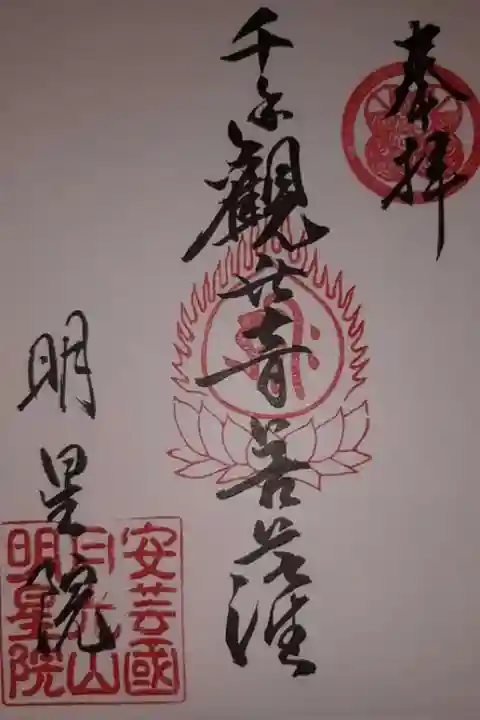 奉拝
千手観世音菩薩
明星院
安芸國
日光山
明星院